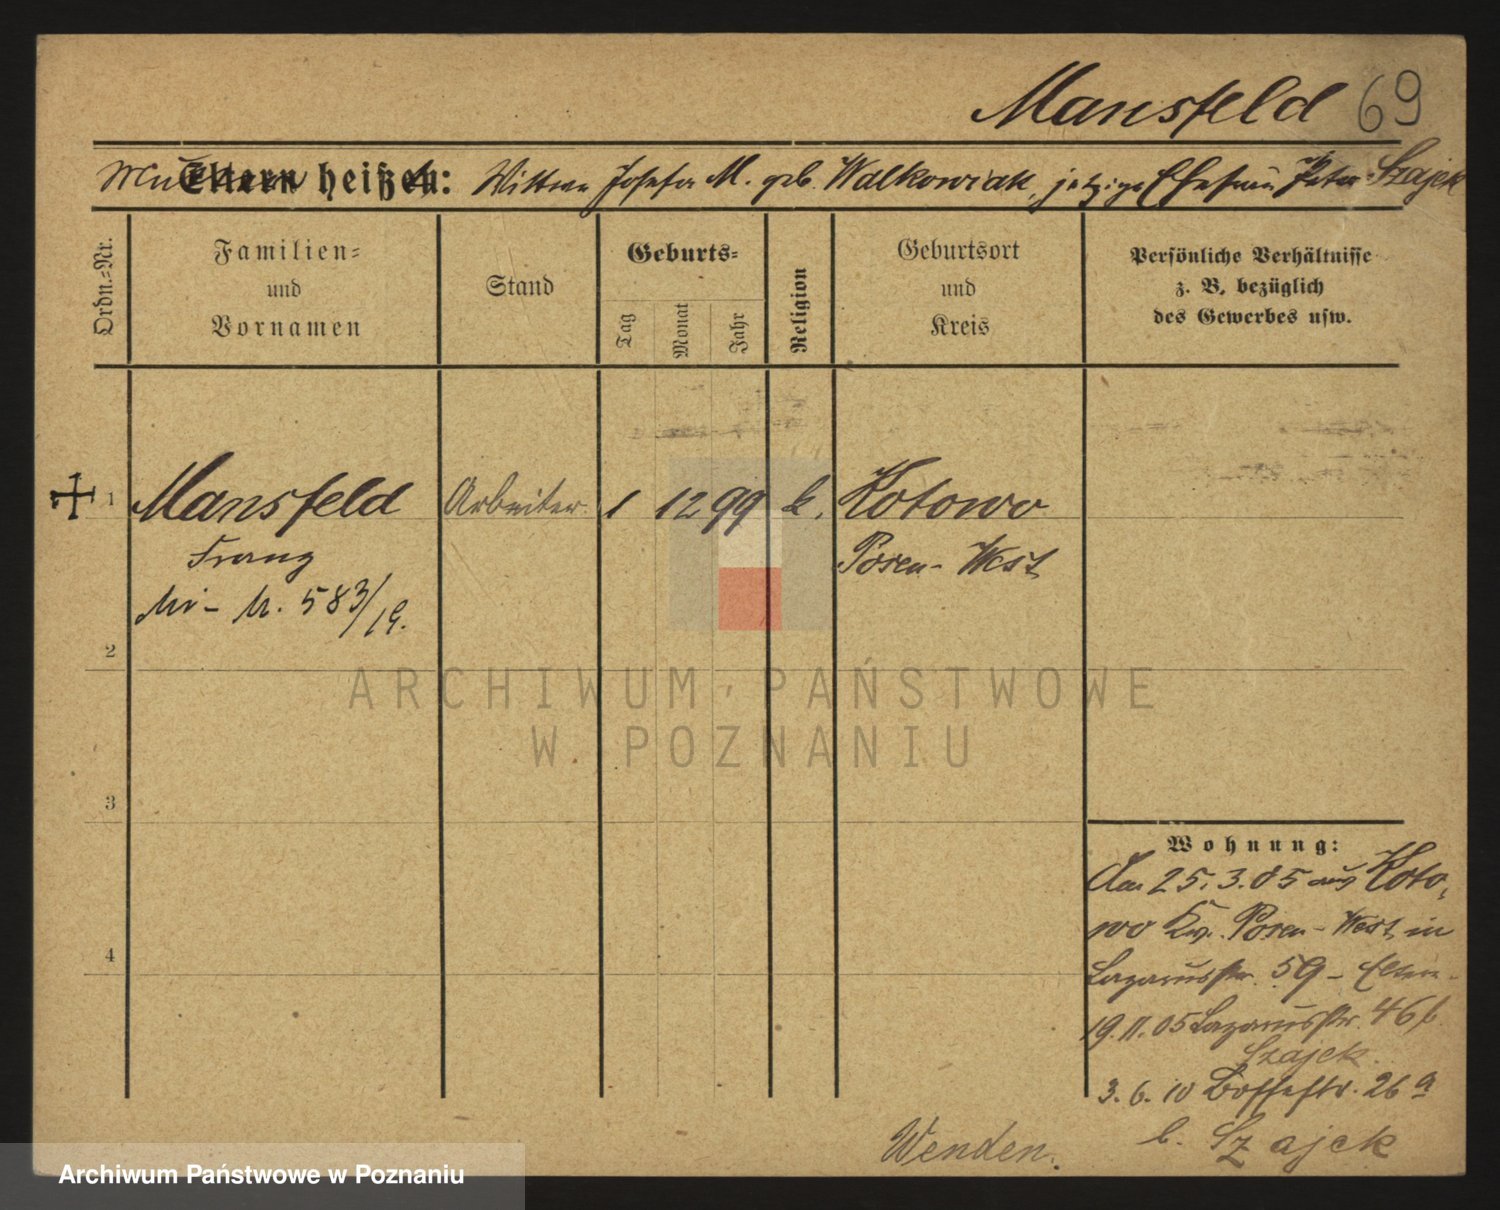 Mansfeld 69
Mutter heißt: Witwe Josefa M. geb. Walkowiak, jetzige Ehefrau Peter Szajek
Ordn.=Nr.
Familien=
und
Vornamen
Stand
Geburts=
Tag
Monat
Jahr
Religion
Geburtsort
und
Kreis
Persönliche Verhältnisse
z. B. bezüglich
des Gewerbes usw.
1 Mansfeld Arbeiter. 1 12 99 k. Kotowo
Franz Posen-West
583/19.
2
ARCHIWUM PAŃSTWOWE
W POZNANIU
3
4
Wohnung:
Am 25.3.05 aus Koto-
wo Kr. Posen-West, in
Lazarusstr. 59 - Eltern.
19.11.05 Lazarusstr. 46
Szajek.
3.6.10 26 a
b. Szajek
Wenden.
Archiwum Państwowe w Poznaniu